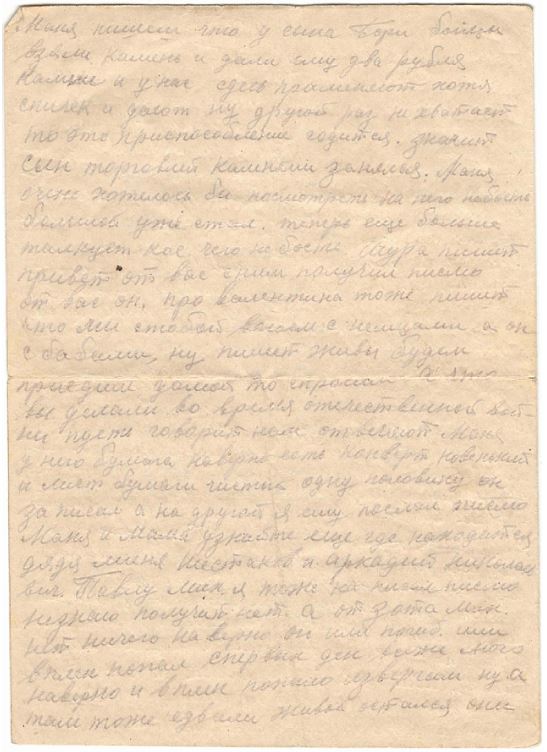 Маня пишеш что у сына Бори бойцы
взяли камень и дали ему два рубля
камни и у нас здесь применяют хотя
спичек и дают ну другой раз не хватает
то это приспособление годится. значит
сын торговлей камнями занялся. Маня
очень хотелось би посмотреть на него наверно
большой уже стал. теперь еще больше
толкует кое чего не бось. Шура пишит
привет от вас с ним получил писмо
от вас он. про валентина тоже пишит
что ми стобой воюем с немцами а он
с бабами, ну пишет живы будем
приедим домой то спросим а что
вы делали во время отечественной вой-
ни пусть говорит нам отвечают Маня
у него бумага наверно есть конверт новенький
и лист бумаги чистый одну половину он
записал а на другой я ему послал писмо
Маня и Мама узнайте еще где находится
дядя Миня Шестаков и аркадий николае
вич. Павлу Мин. я тоже написал писмо
незнаю получит нет. а от зота мин.
нет ничего наверно он или погиб или
в плен попал с первих дней
наверно и в плен попало ну а
там тоже едвали живой остался они